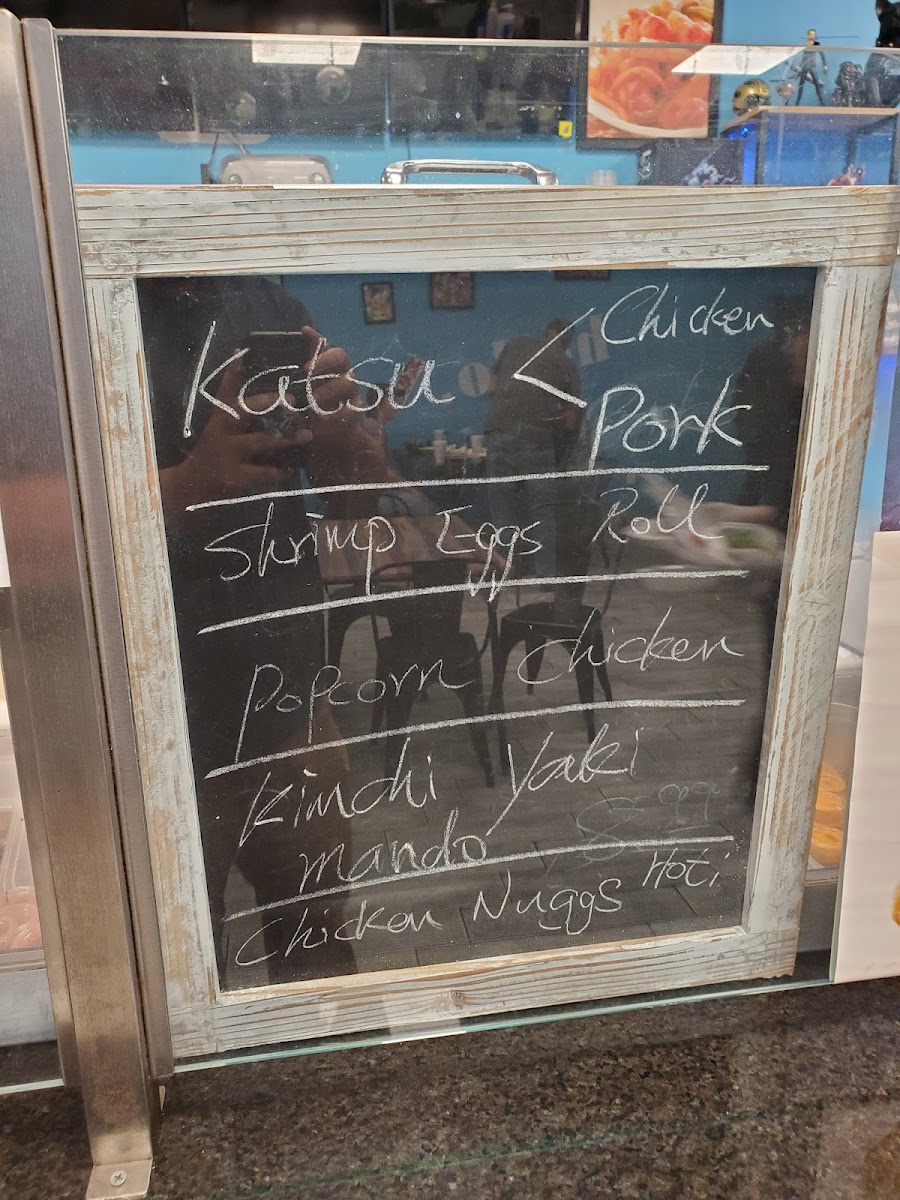 Katsu < Chicken
Pork
Shrimp Eggs Roll
Popcorn Chicken
Kimchi Yaki
mando 8.99
Chicken Nuggs Hoti